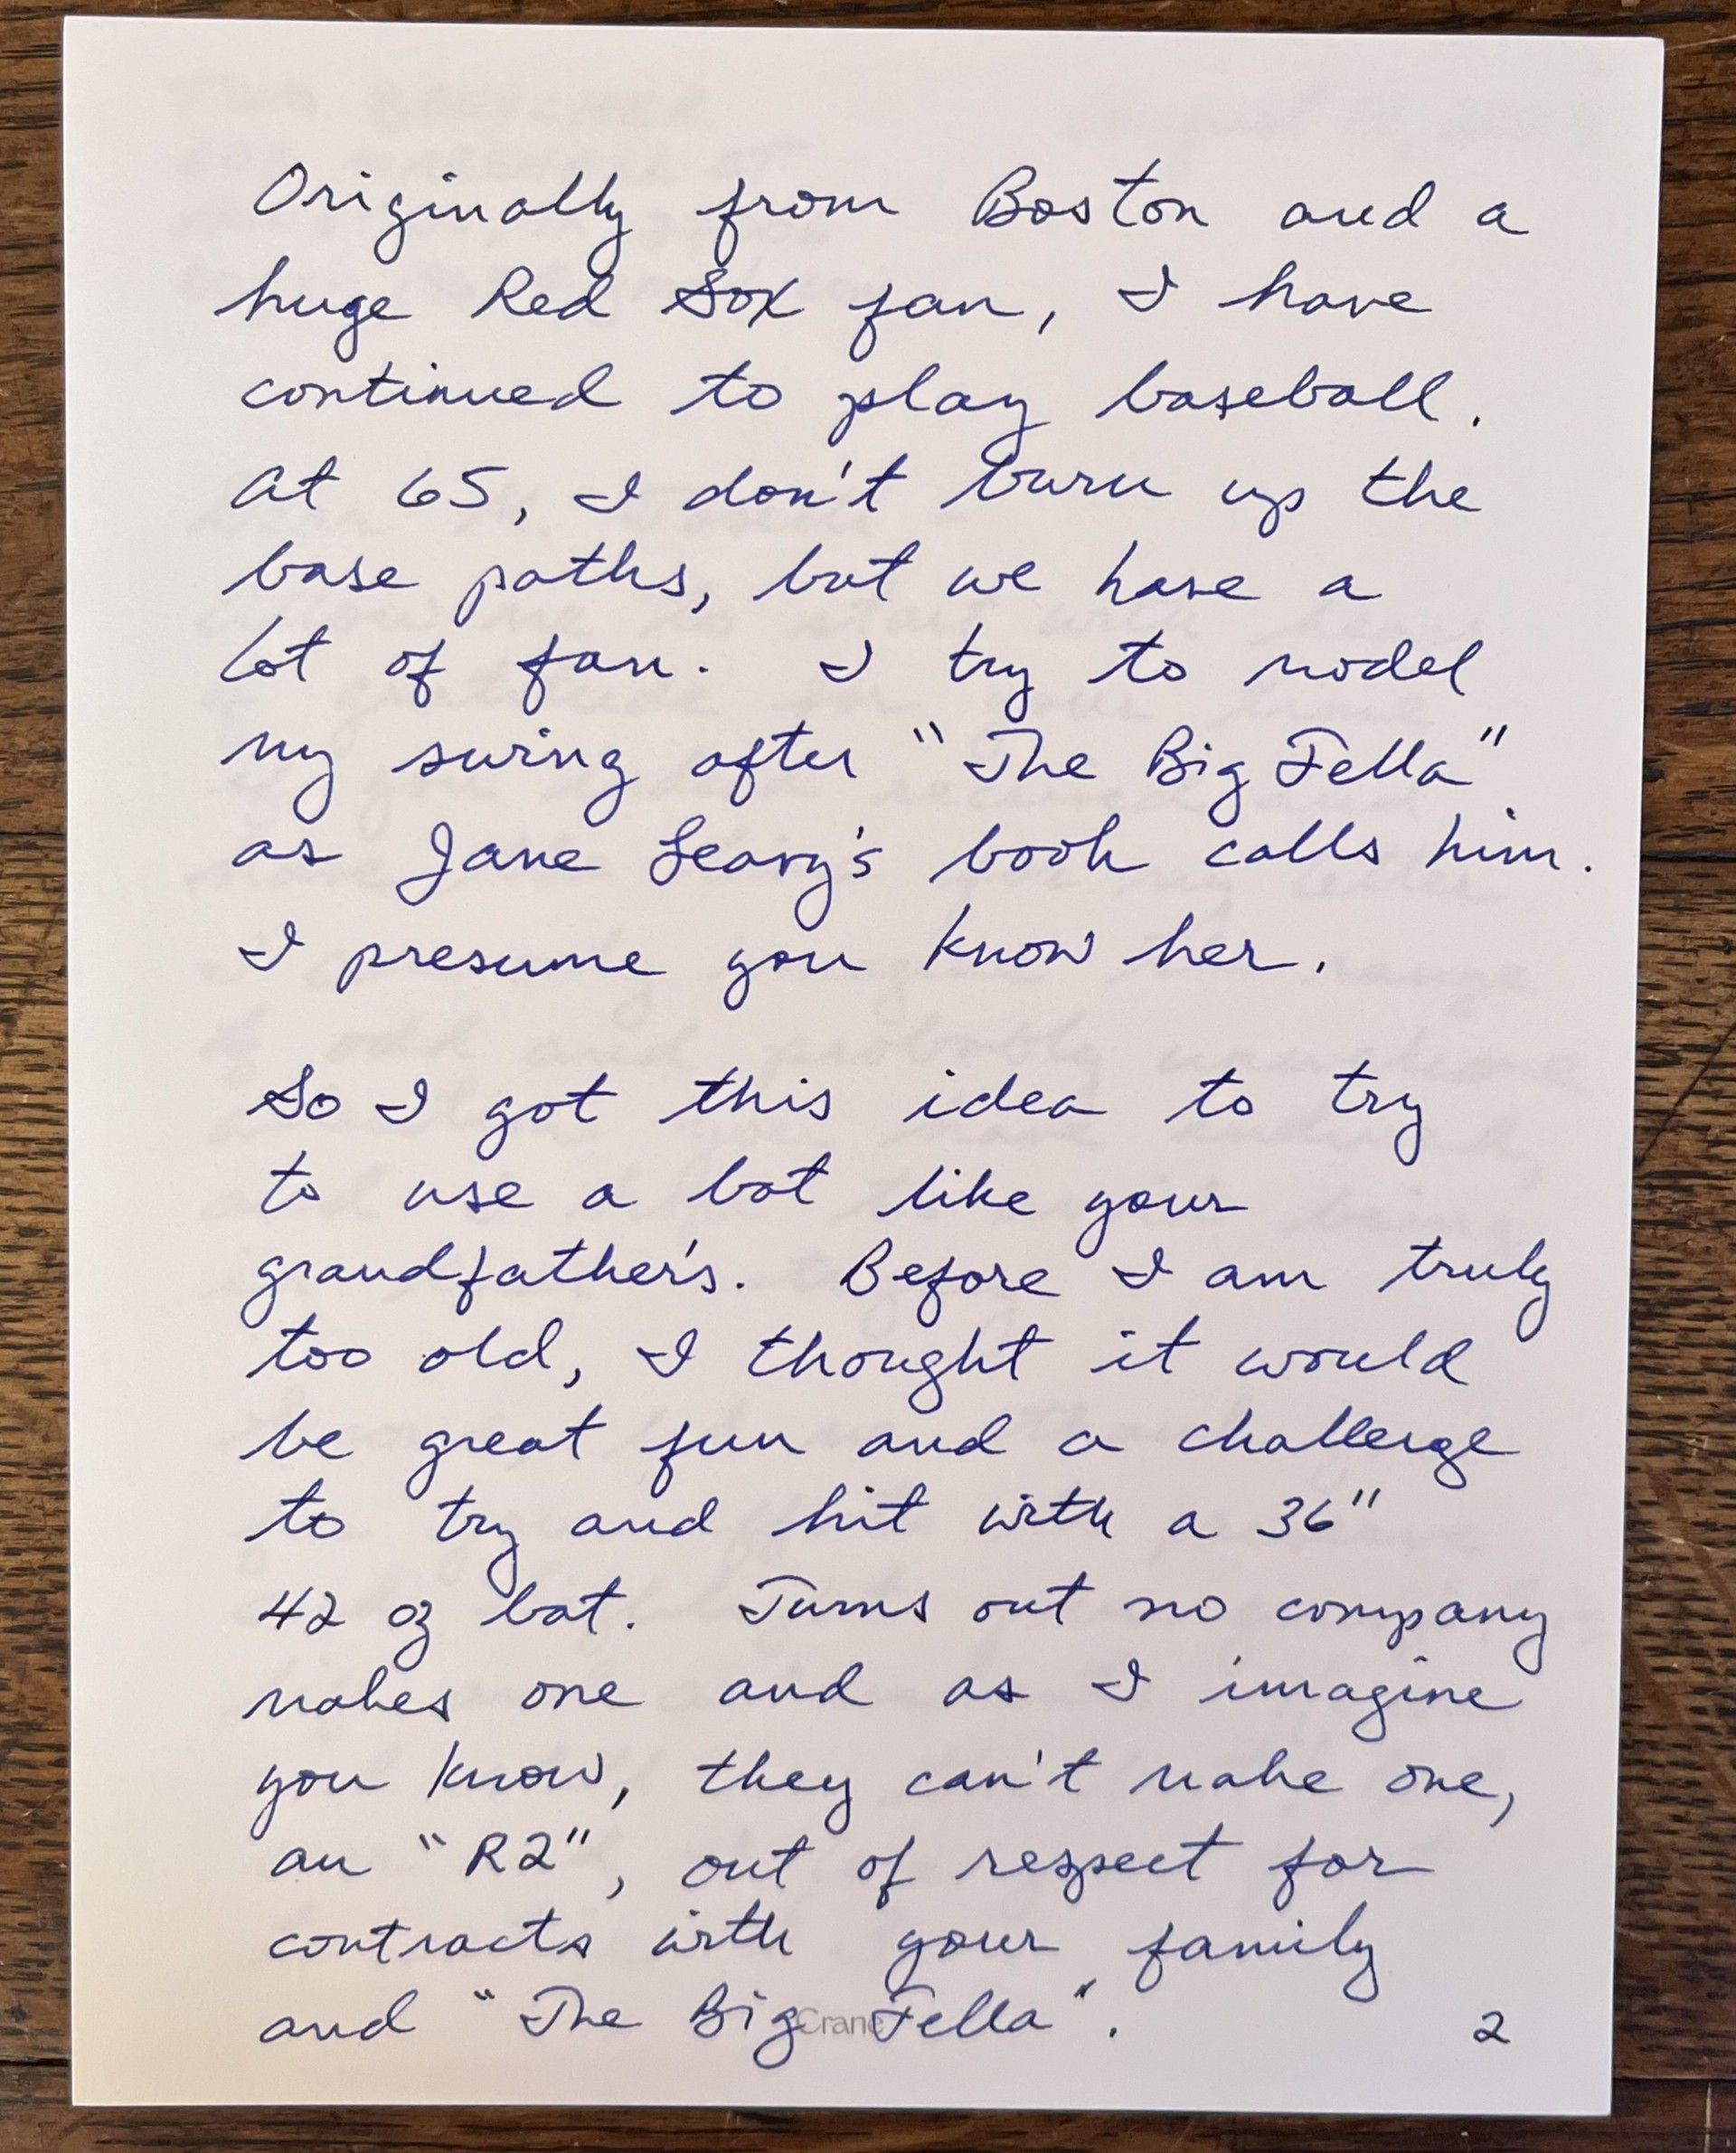 Originally from Boston and a
huge Red Sox fan, I have
continued to play baseball.
At 65, I don't burn up the
base paths, but we have a
lot of fun. I try to model
my swing after "The Big Fella"
as Jane Leavy's book calls him.
I presume you know her.
So I got this idea to try
to use a bat like your
grandfather's. Before I am truly
too old, I thought it would
be great fun and a challenge
to try and hit with a 36"
42 oz bat. Turns out no company
makes one and as I imagine
you know, they can't make one,
an "R2", out of respect for
contracts with your family
and "The Big Fella".
Crane
2